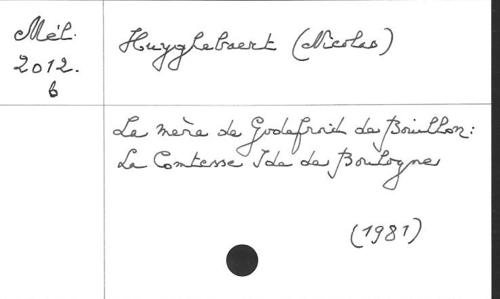 Mél.
2012.
6
Huyghebaert (Nicolas)
La mère de Godefroid de Bouillon:
La Comtesse Ide de Boulogne
(1981)